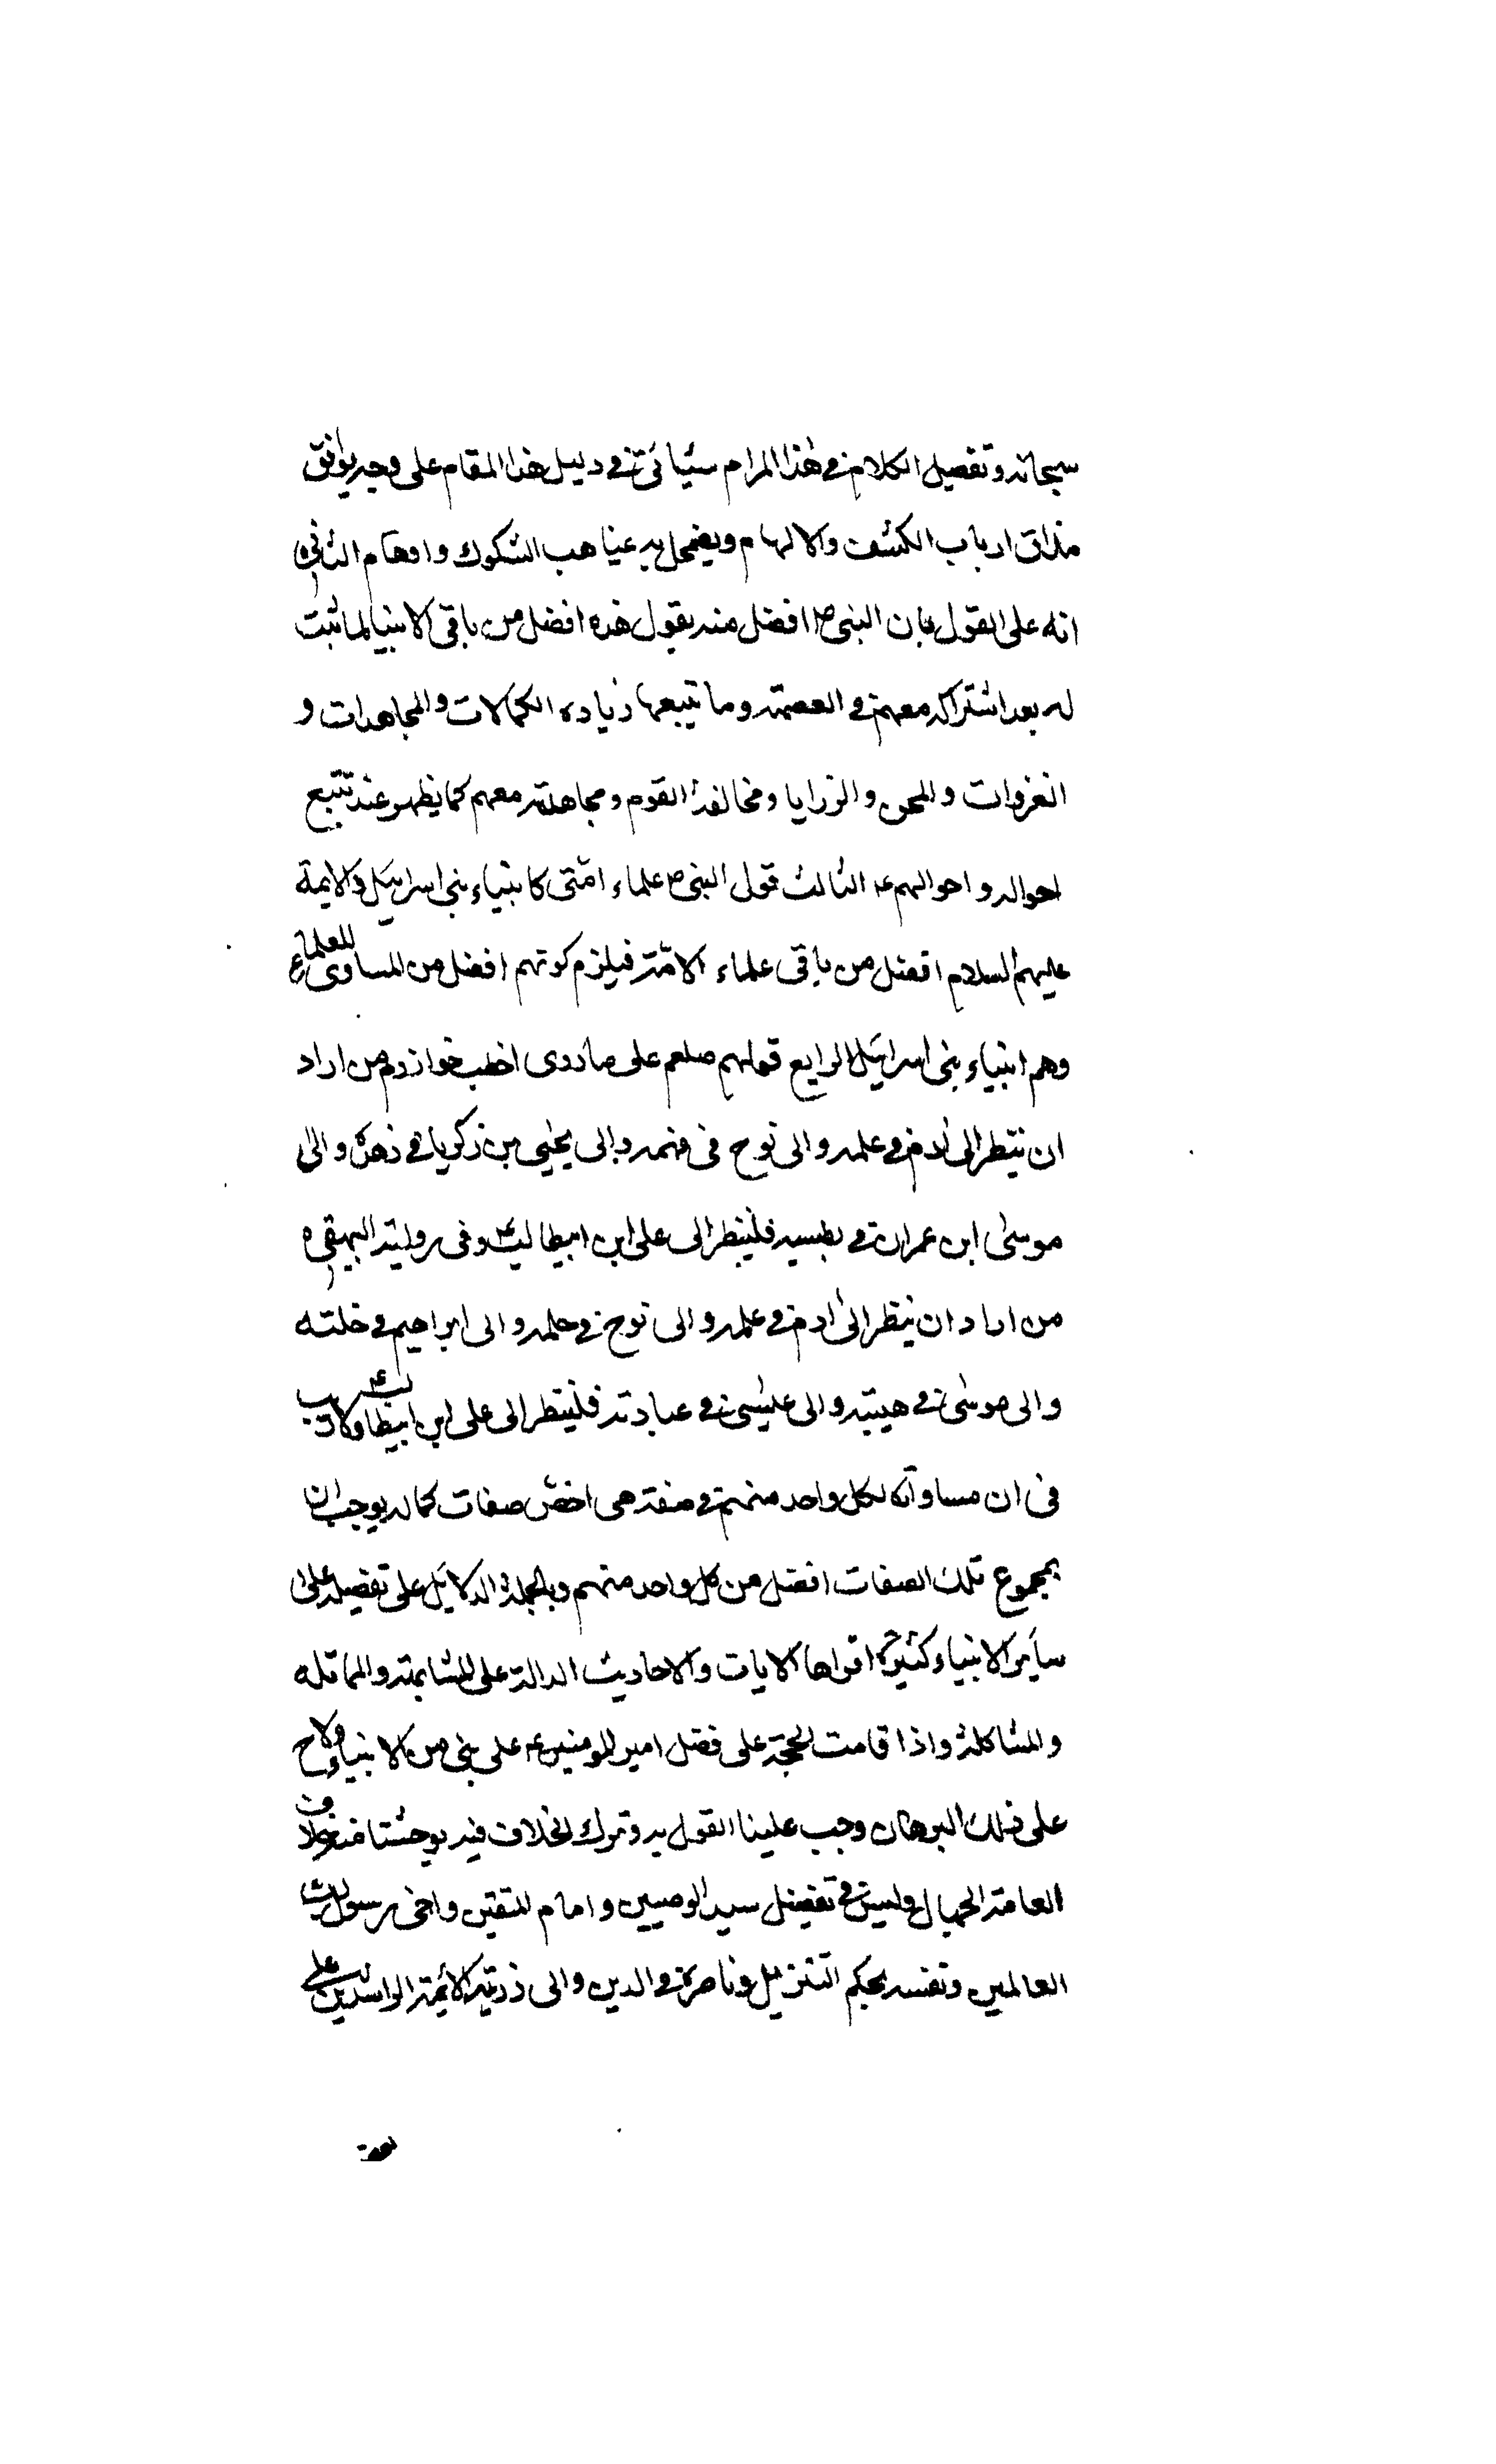 سبحانه وتفصيل الكلام في هذا المرام سيأتي في ذيل هذا المقام على وجه يوافق
مذاق ارباب الكشف والالهام ويضمحل به غياهب الشكوك واوهام الثاني
انه على القول بان النبي ص افضل منه يقول هذه افضل من باقي الانبيا لما ثبت
له بعد اشتراكه معهم في العصمة وما تتبعها زيادة الكمالات والمجاهدات و
الغزوات والمحن والرزايا ومخالفة القوم ومجاهدته معهم كما يظهر عند تتبع
احواله واحوالهم ع الثالث قول النبي ص علماء امّتي كانبياء بني اسرائيل والايمة
عليهم السلام افضل من باقي علماء الامّة فيلزم كونهم افضل من المساوى للعلماء
وهم انبياء بني اسرائيل الرابع قولهم صلعم على ما روى اخطب خوارزم من اراد
ان ينظر الى ادم في علمه والى نوح في فهمه والى يحيى بن زكريا في زهده والى
موسى ابن عمران في بطشه فلينظر الى علي ابن ابيطالب ع وفي رواية البيهقي
من اراد ان ينظر الى ادم في علمه والى نوح في حلمه والى ابراهيم في خلته
والى موسى في هيبته والى عيسى في عبادته فلينظر الى على ابن ابيطالب ع ولا ريب
في ان مساواته لكل واحد منهم في صفة هي اخصّ صفات كماله يوجب ان
بمجموع تلك الصفات افضل من كل واحد منهم وبالجملة الدلايل على تفضيله على
ساير الانبياء كثيرة اقواها الايات والاحاديث الدالة على المشابهة والمماثله
والمشاكلة واذا قامت الحجّة على فضل امير المومنين ع على نبي من الانبياء ولاح
على ذلك البرهان وجب علينا القول به وترك الخلاف فيه يوحشنا منه خلاف
العامة الجهال وليس في تفضيل سيد الوصيين وامام المتقين واخي رسول رب
العالمين ونفسه بحكم التنزيل وناصره في الدين والى ذريته الائمة الراشدين على